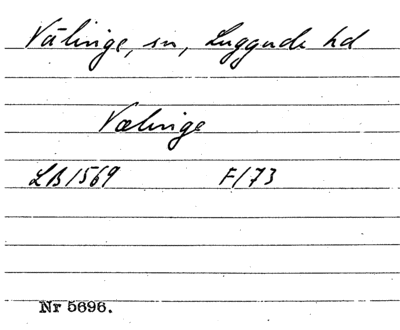 Välinge, sn, Luggude hd
Vælinge
LB 1569 F173
Nr 5696.